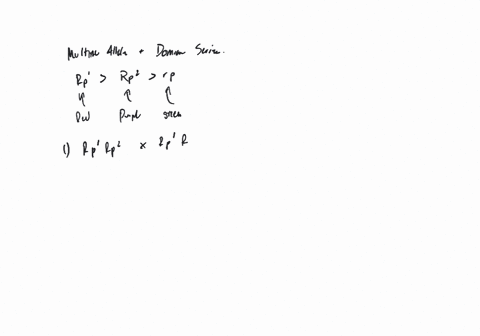 Multiple Alleles + Dominance Series.
Rp¹ > Rp² > rp
Red Purple green
1) Rp¹ Rp² × Rp¹ R